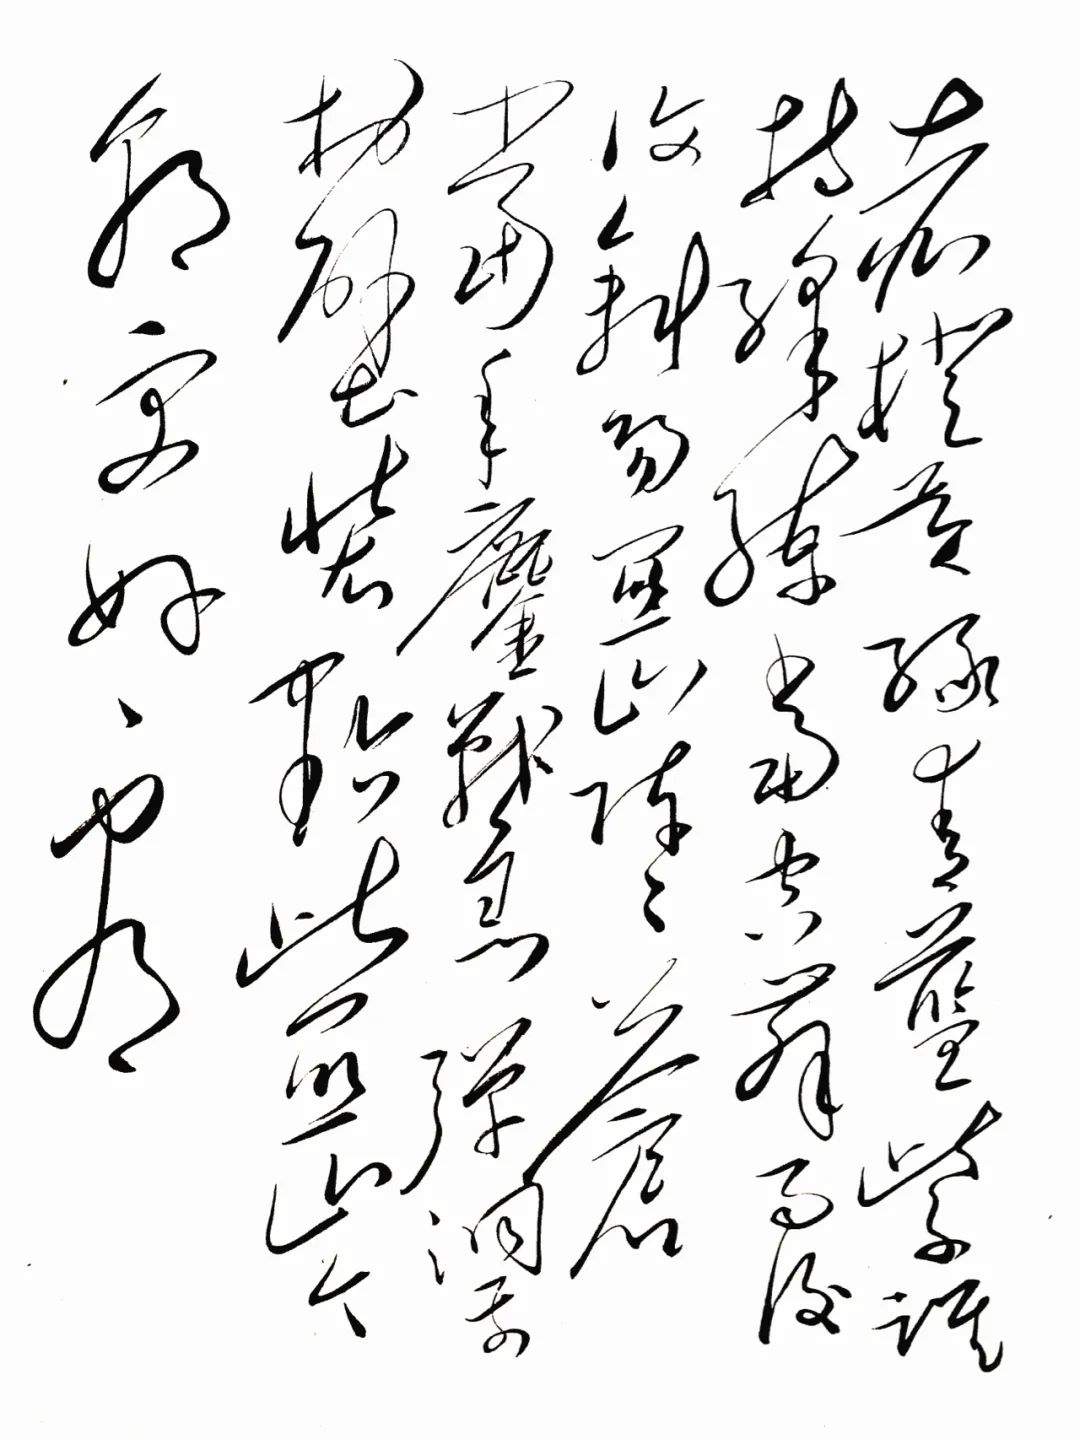 赤橙黄绿青蓝紫谁
持彩练当空舞雨后
复斜阳关山阵阵苍
当年鏖战急弹洞前
村壁装点此关山今
朝更好看